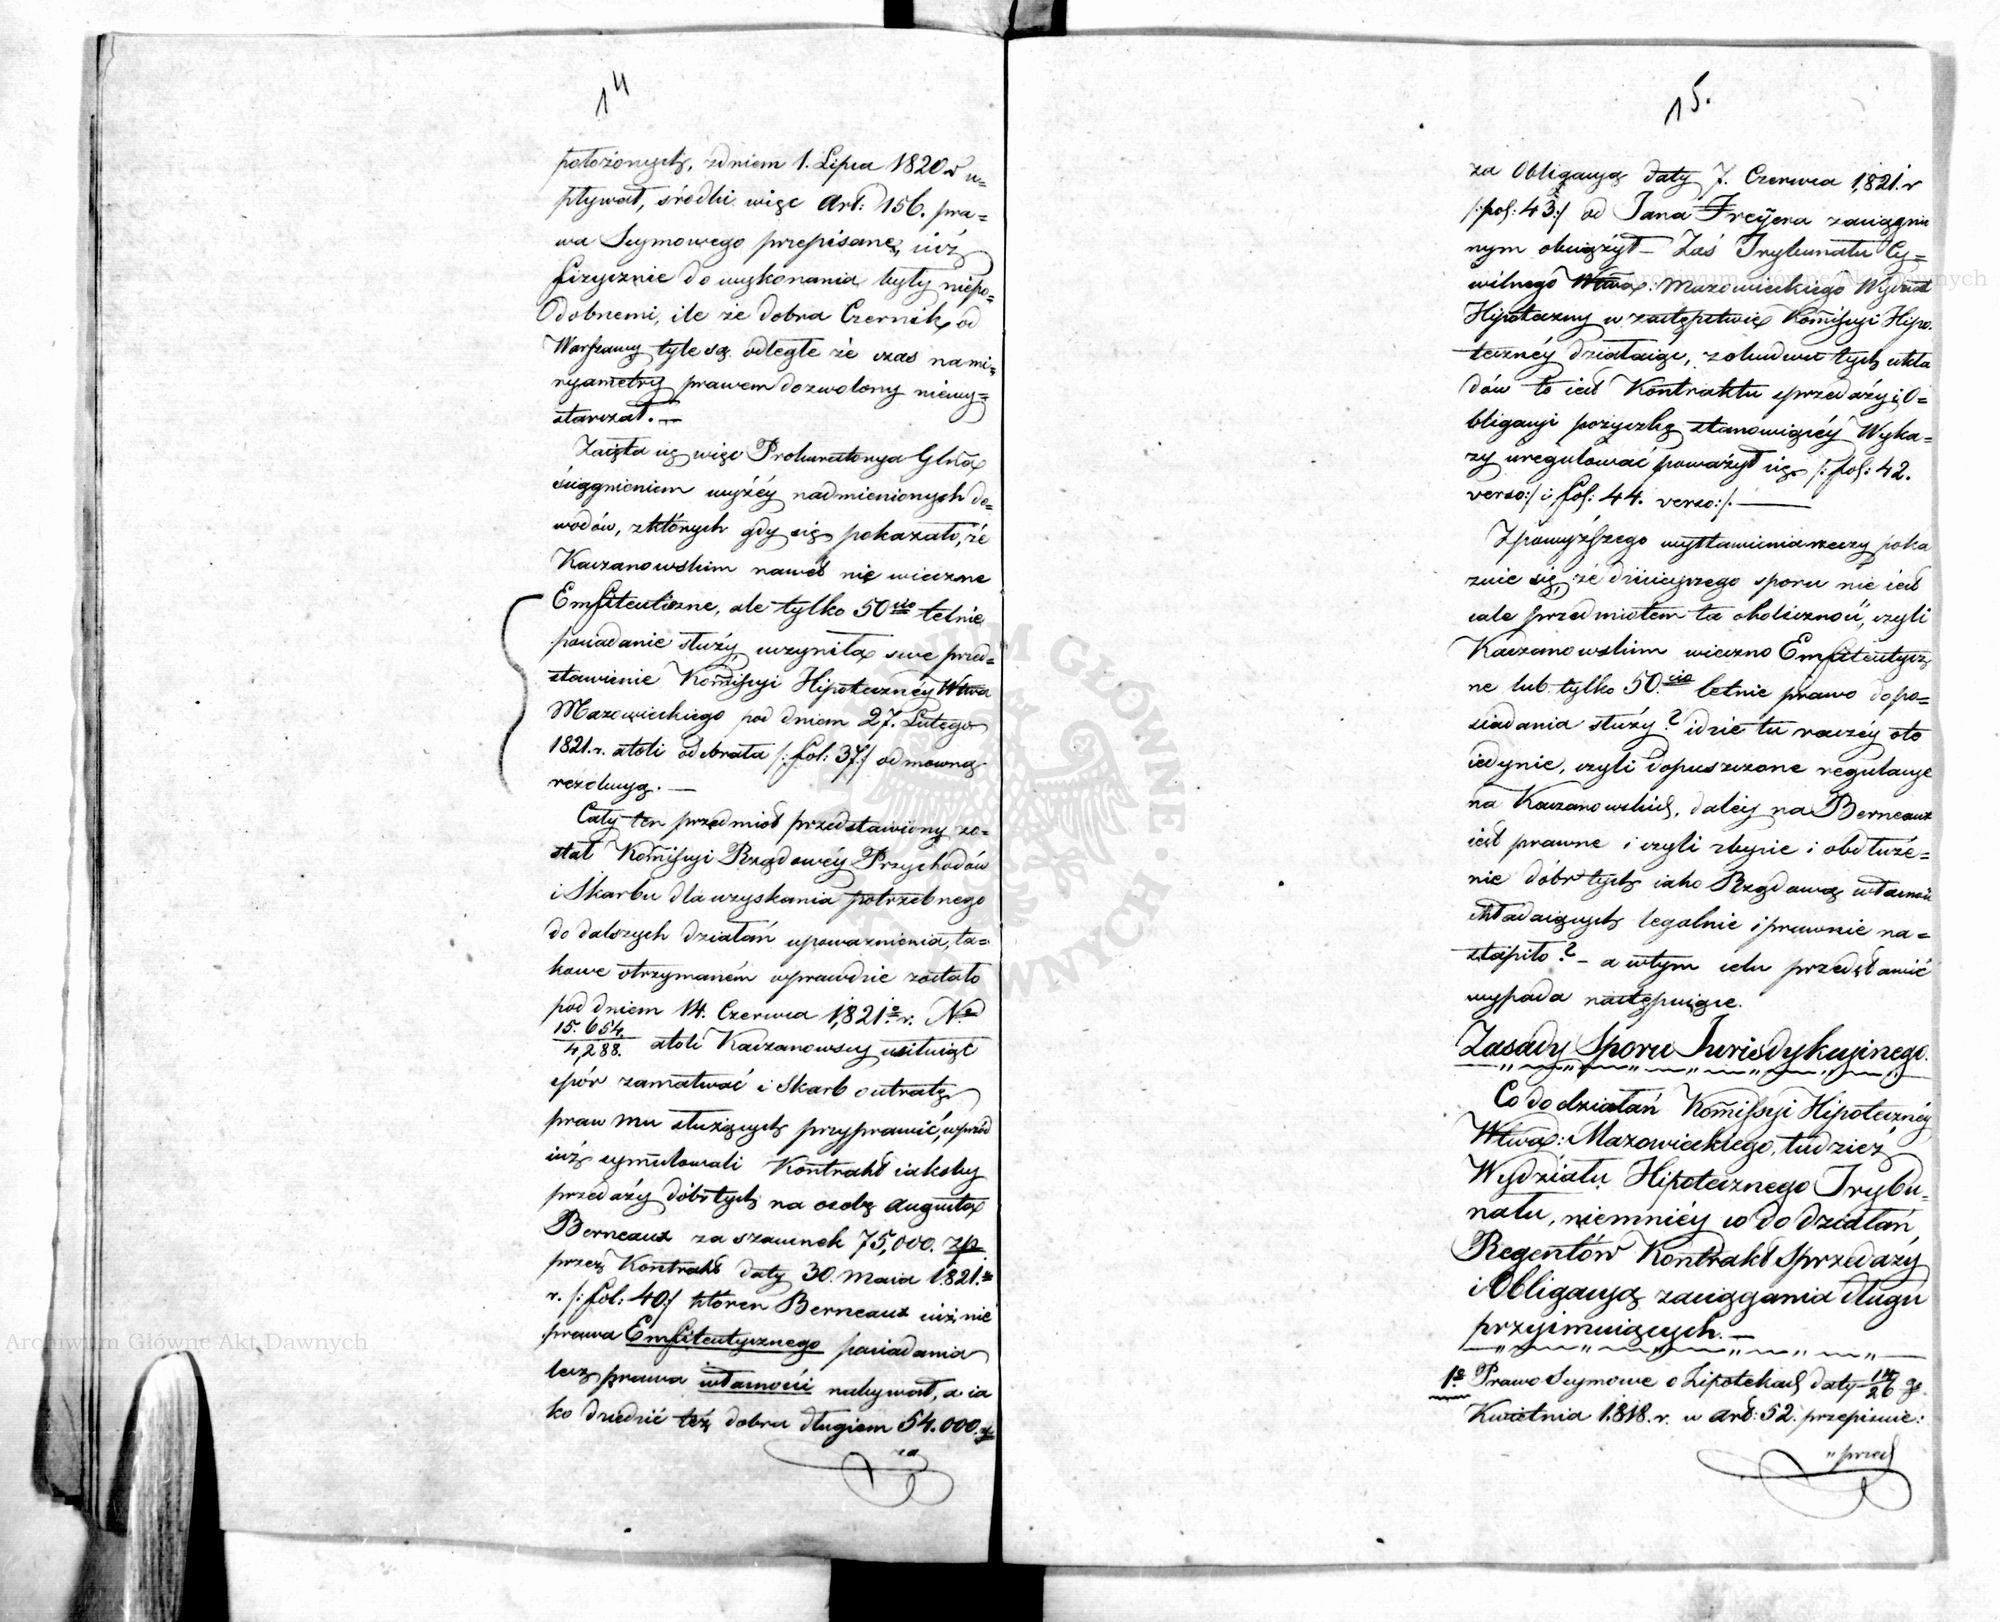 14
położonych, z dniem 1. Lipca 1820 r u=
pływał, środki więc Art: 156. pra=
wa Seymowego przepisane, iuż
fizycznie do wykonania były niepo=
dobnemi, ile że dobra Czernik od
Warszawy tyle są odległe że czas na mi=
ryametry prawem dozwolony niewy=
starczał. —
Zaięła się więc Prokuratorya Glna
ściągnieniem wyżéy nadmienionych do=
wodów, z których gdy się pokazało, że
Kaczanowskim nawet nie wieczne
Emfiteuticzne, ale tylko 50cio letnie
posiadanie służy uczyniła swe przed=
stawienie Kom̄issyi Hipotecznéy Wtwa
Mazowieckiego pod dniem 27. Lutego
1821. r. atoli odebrała /: fol: 37:/ odmowną
rezolucyą. —
Cały ten przedmiot przedstawiony zo=
stał Kom̄issyi Rządowéy Przychodów
i Skarbu dla uzyskania potrzebnego
do dalszych działań upoważnienia, ta=
kowe otrzymaném wprawdzie zostało
pod dniem 14. Czerwca 1821. r. No
15.654/4,288. atoli Kaczanowscy usiłuiąc
spór zamatwać i Skarb o utratę
praw mu służących przyprawić, wprzód
iuż symulowali Kontrakt iakoby
przedaży dóbr tych na osobę Augusta
Berneaux za szacunek 75,000. zp
przez Kontrakt daty 30. Maia 1821.
r. /: fol: 40:/ któren Berneaux iuż nie
prawa Emfiteutycznego posiadania
lecz prawa własności nabywał, a ia
ko dziedzic też dobra długiem 54.000. zp
za
15.
za Obligacyą daty 7. Czerwca 1821. r
/: fol: 43:/ od Jana Freyera zaciągnio
nym obciążył — Zaś Trybunału Cy=
wilnego Wtwa: Mazowieckiego Wydział
Hipoteczny w zastępstwie Kom̄issyi Hipo=
tecznéy działaiąc, z obudwu tych ukła
dów to iest Kontraktu sprzedaży i O=
bligacyi pożyczkę stanowiącéy Wyka=
zy uregulować poważył się /: fol: 42.
verso:/ i fol: 44. verso:/. —
Z powyższego wystawienia rzeczy poka
zuie się, że dzisieyszego sporu nie iest
cale przedmiotem ta okoliczność, czyli
Kaczanowskim wieczno Emfiteutycz
ne lub tylko 50.cio letnie prawo do po=
siadania służy? idzie tu raczéy oto
iedynie, czyli dopuszczone regulacye
na Kaczanowskich, daléy na Berneaux
iest prawne i czyli zbycie i obdłuże=
nie dóbr tych iako Rządową własność
składaiących legalnie i prawnie na=
stąpiło? — a w tym celu przedstawić
wypada następuiące.
Zasady Sporu Jurisdykcyinego.
Co do działań Kom̄issyi Hipotecznéy
Wtwa: Mazowieckiego, tudzież
Wydziału Hipotecznego Trybu=
nału, niemniéy co do działań
Regentów Kontrakt Sprzedaży
i Obligacyą zaciągania długu
przyimuiących. —
1o Prawo Seymowe o Hipotekach daty 14/26 go
Kwietnia 1818. r. w Art: 52. przepisuie:
" przed
Archiwum Główne Akt Dawnych
Archiwum Główne Akt Dawnych
ARCHIWUM GŁÓWNE AKT DAWNYCH